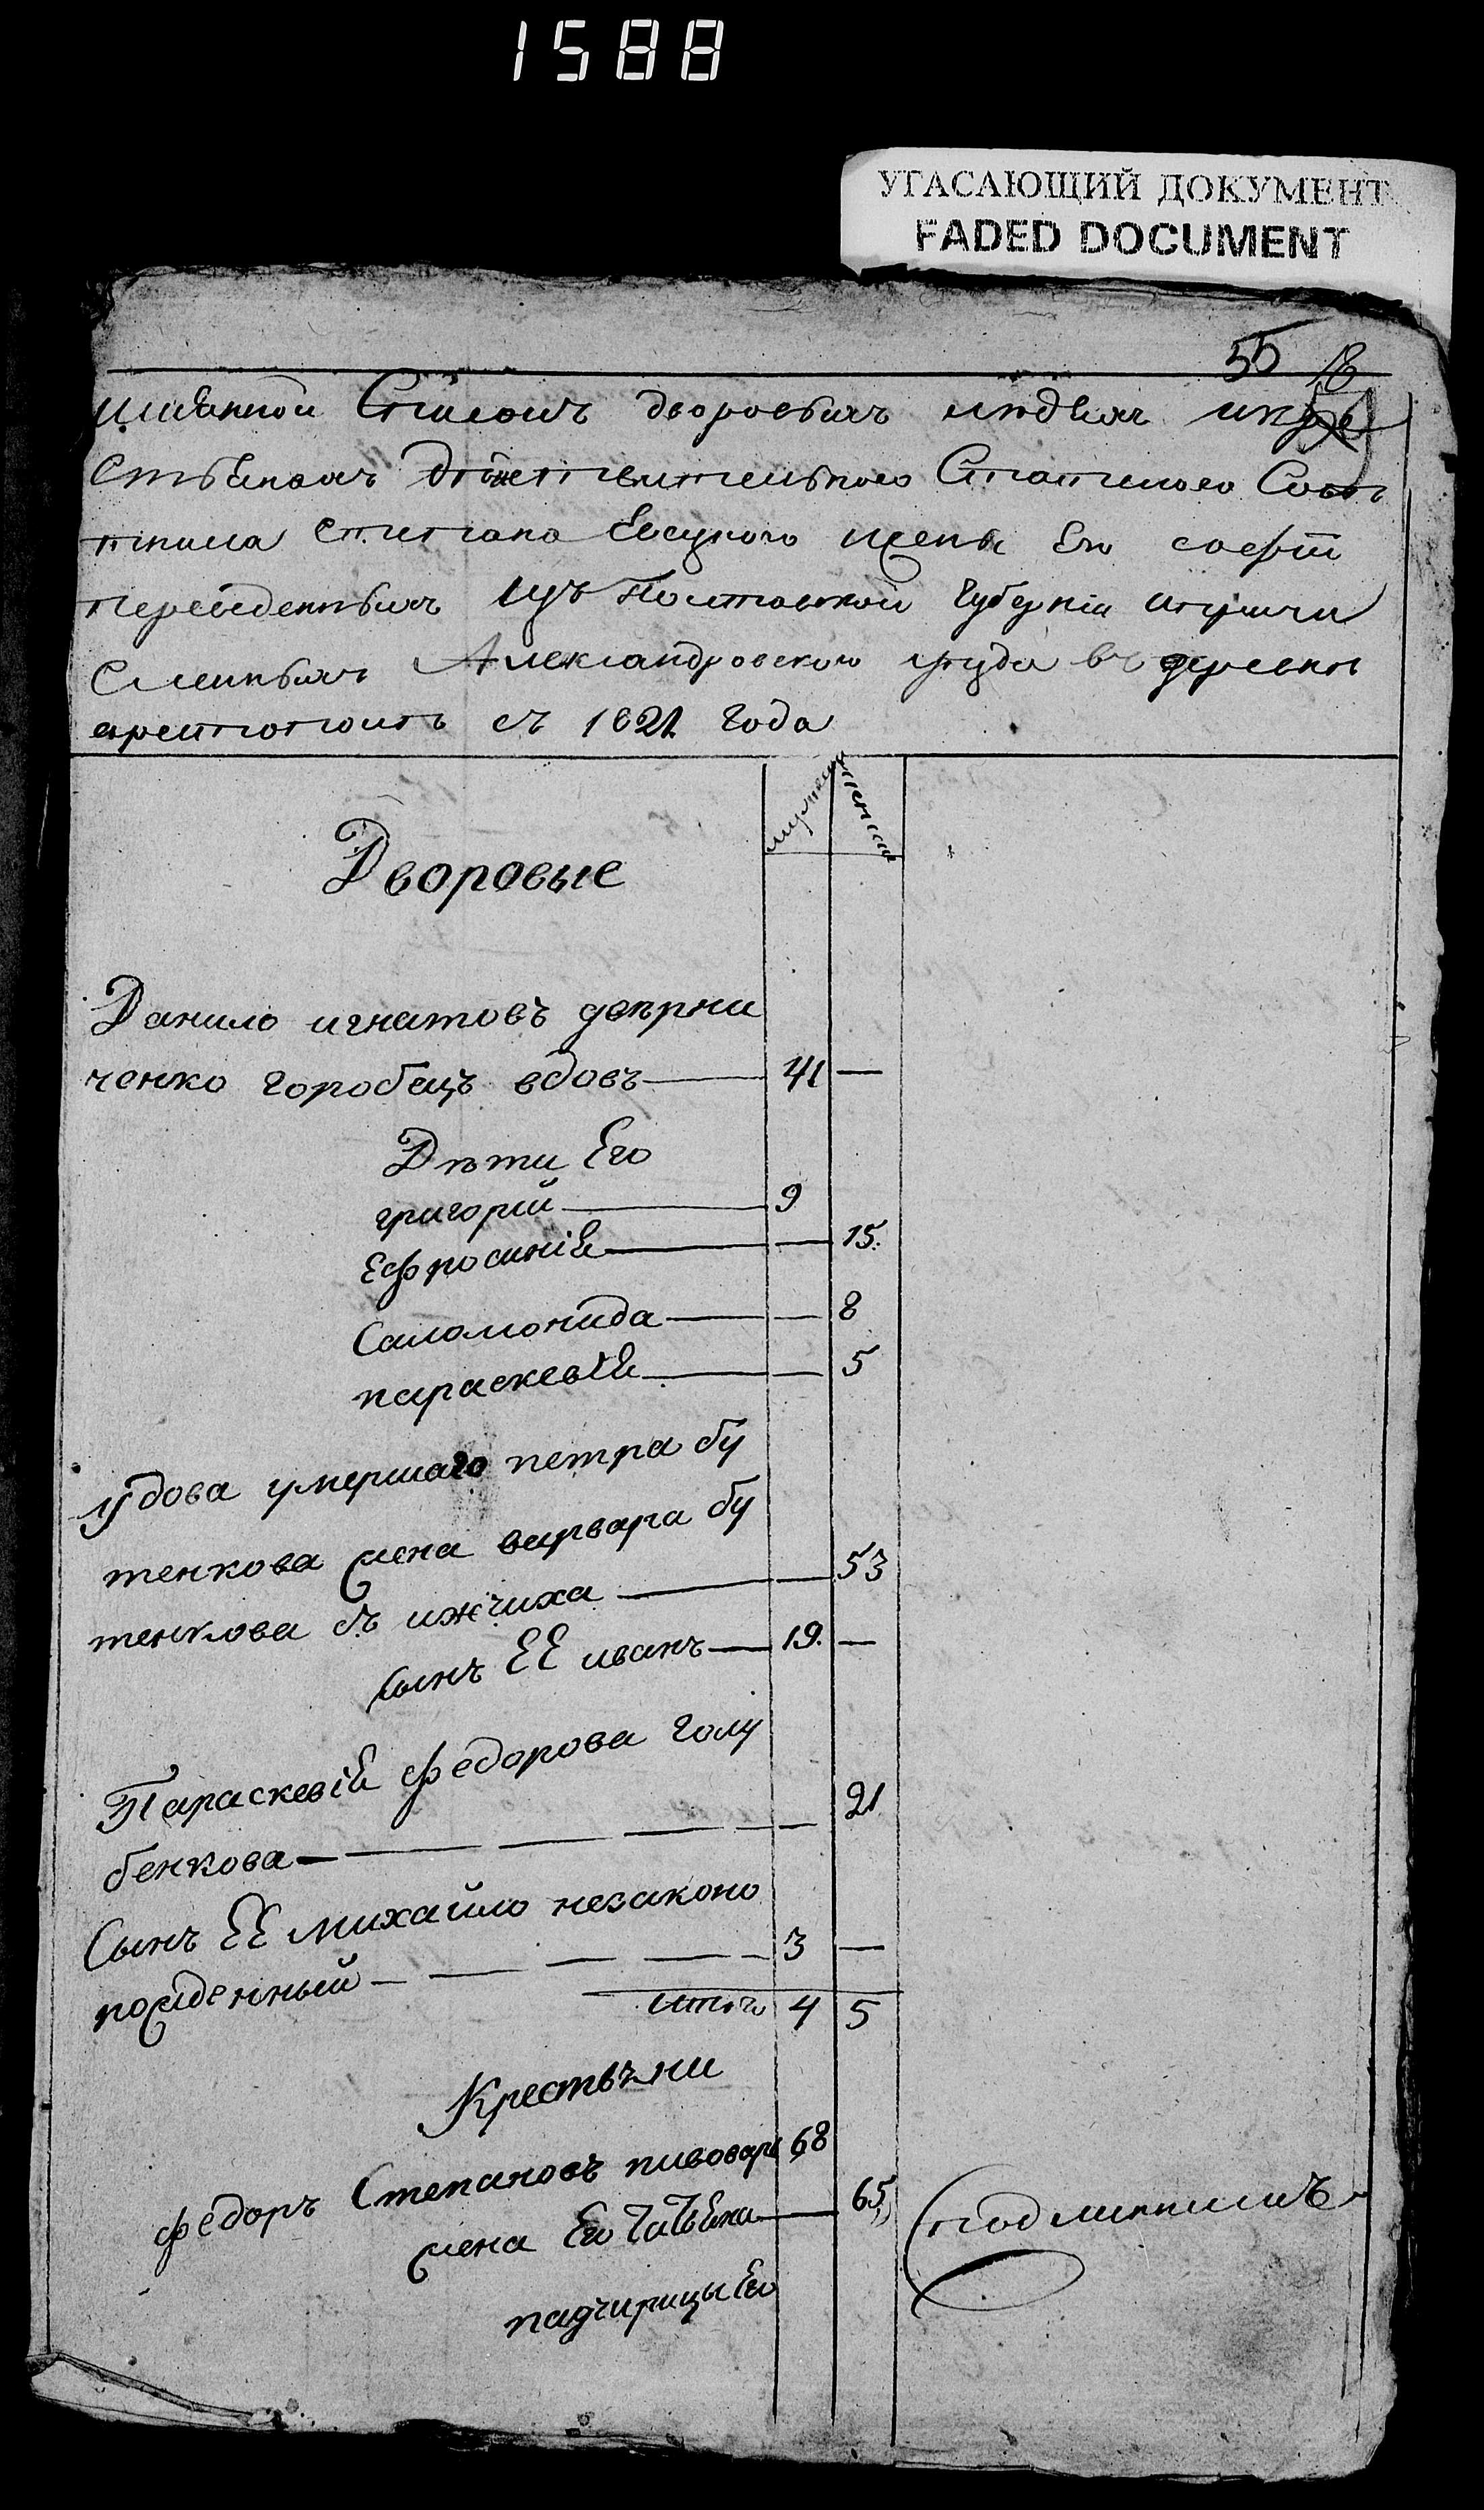 1588
УГАСАЮЩИЙ ДОКУМЕНТ
FADED DOCUMENT
55 18
имѣнной Списокъ дворовымъ людемъ икре
стьѣномъ Статского Совѣ
тника степана жены Его софіи
переведеннымъ изъ Полтавской губерніи
Александровского уѣзда въ деревни
съ 1821 года
мужеск женски
Дворовые
Данило игнатовъ
ченко горобецъ вдовъ — 41 —
Дѣти Его
григорій — 9
Ефросиніѣ — — 15.
Саломонида — — 8
параскевіѣ — — 5
удова умершаго петра бу
тенкова жена варвара бу
тенкова — — 53
сынъ ЕЕ иванъ — 19. —
Параскевіѣ федорова голу
бенкова — — — — — 21
Сынъ ЕЕ михайло незаконо
рожденный — — — — — 3 —
итого 4 5
Крестьѣни
федоръ Степановъ пивоваръ 68
жена Его татьѣна — 65
падчирицы Его